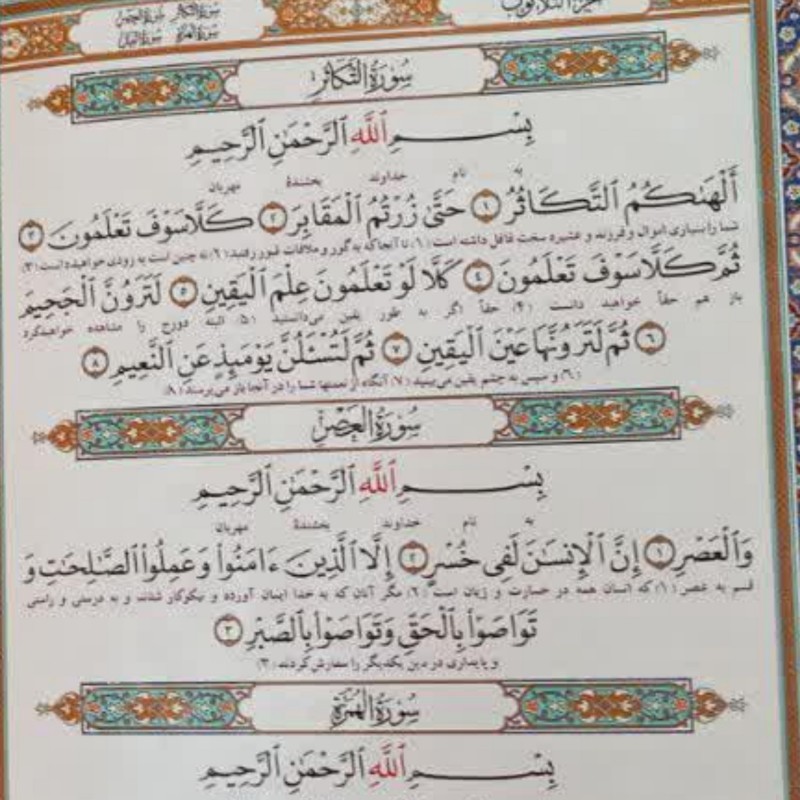 سورة التكاثر سورة العصر
سورة الهمزة سورة الفيل
سُورَةُ التَّكَاثُرِ
بِسْمِ ٱللَّهِ ٱلرَّحْمَٰنِ ٱلرَّحِيمِ
به نام خداوند بخشندهٔ مهربان
أَلْهَىٰكُمُ ٱلتَّكَاثُرُ ﴿١﴾ حَتَّىٰ زُرْتُمُ ٱلْمَقَابِرَ ﴿٢﴾ كَلَّا سَوْفَ تَعْلَمُونَ ﴿٣﴾
شما را بسیاری اموال و فرزند و عشیره سخت غافل داشته است (۱) تا آنجا که به گور و ملاقات قبور رفتید (۲) نه چنین است به زودی خواهید دانست (۳)
ثُمَّ كَلَّا سَوْفَ تَعْلَمُونَ ﴿٤﴾ كَلَّا لَوْ تَعْلَمُونَ عِلْمَ ٱلْيَقِينِ ﴿٥﴾ لَتَرَوُنَّ ٱلْجَحِيمَ
باز هم حقاً خواهید دانست (۴) حقاً اگر به طور یقین می‌دانستید (۵) البته دوزخ را مشاهده خواهید کرد
﴿٦﴾ ثُمَّ لَتَرَوُنَّهَا عَيْنَ ٱلْيَقِينِ ﴿٧﴾ ثُمَّ لَتُسْـَٔلُنَّ يَوْمَئِذٍ عَنِ ٱلنَّعِيمِ ﴿٨﴾
(۶) و سپس به چشم یقین می‌بینید (۷) آنگاه از نعمتها شما را در آنجا باز می‌پرسند (۸)
سُورَةُ الْعَصْرِ
بِسْمِ ٱللَّهِ ٱلرَّحْمَٰنِ ٱلرَّحِيمِ
به نام خداوند بخشندهٔ مهربان
وَٱلْعَصْرِ ﴿١﴾ إِنَّ ٱلْإِنسَٰنَ لَفِى خُسْرٍ ﴿٢﴾ إِلَّا ٱلَّذِينَ ءَامَنُوا۟ وَعَمِلُوا۟ ٱلصَّٰلِحَٰتِ وَ
قسم به عصر (۱) که انسان همه در خسارت و زیان است (۲) مگر آنان که به خدا ایمان آورده و نیکوکار شدند و به درستی و راستی
تَوَاصَوْا۟ بِٱلْحَقِّ وَتَوَاصَوْا۟ بِٱلصَّبْرِ ﴿٣﴾
و پایداری در دین یکدیگر را سفارش کردند (۳)
سُورَةُ الْهُمَزَةِ
بِسْمِ ٱللَّهِ ٱلرَّحْمَٰنِ ٱلرَّحِيمِ